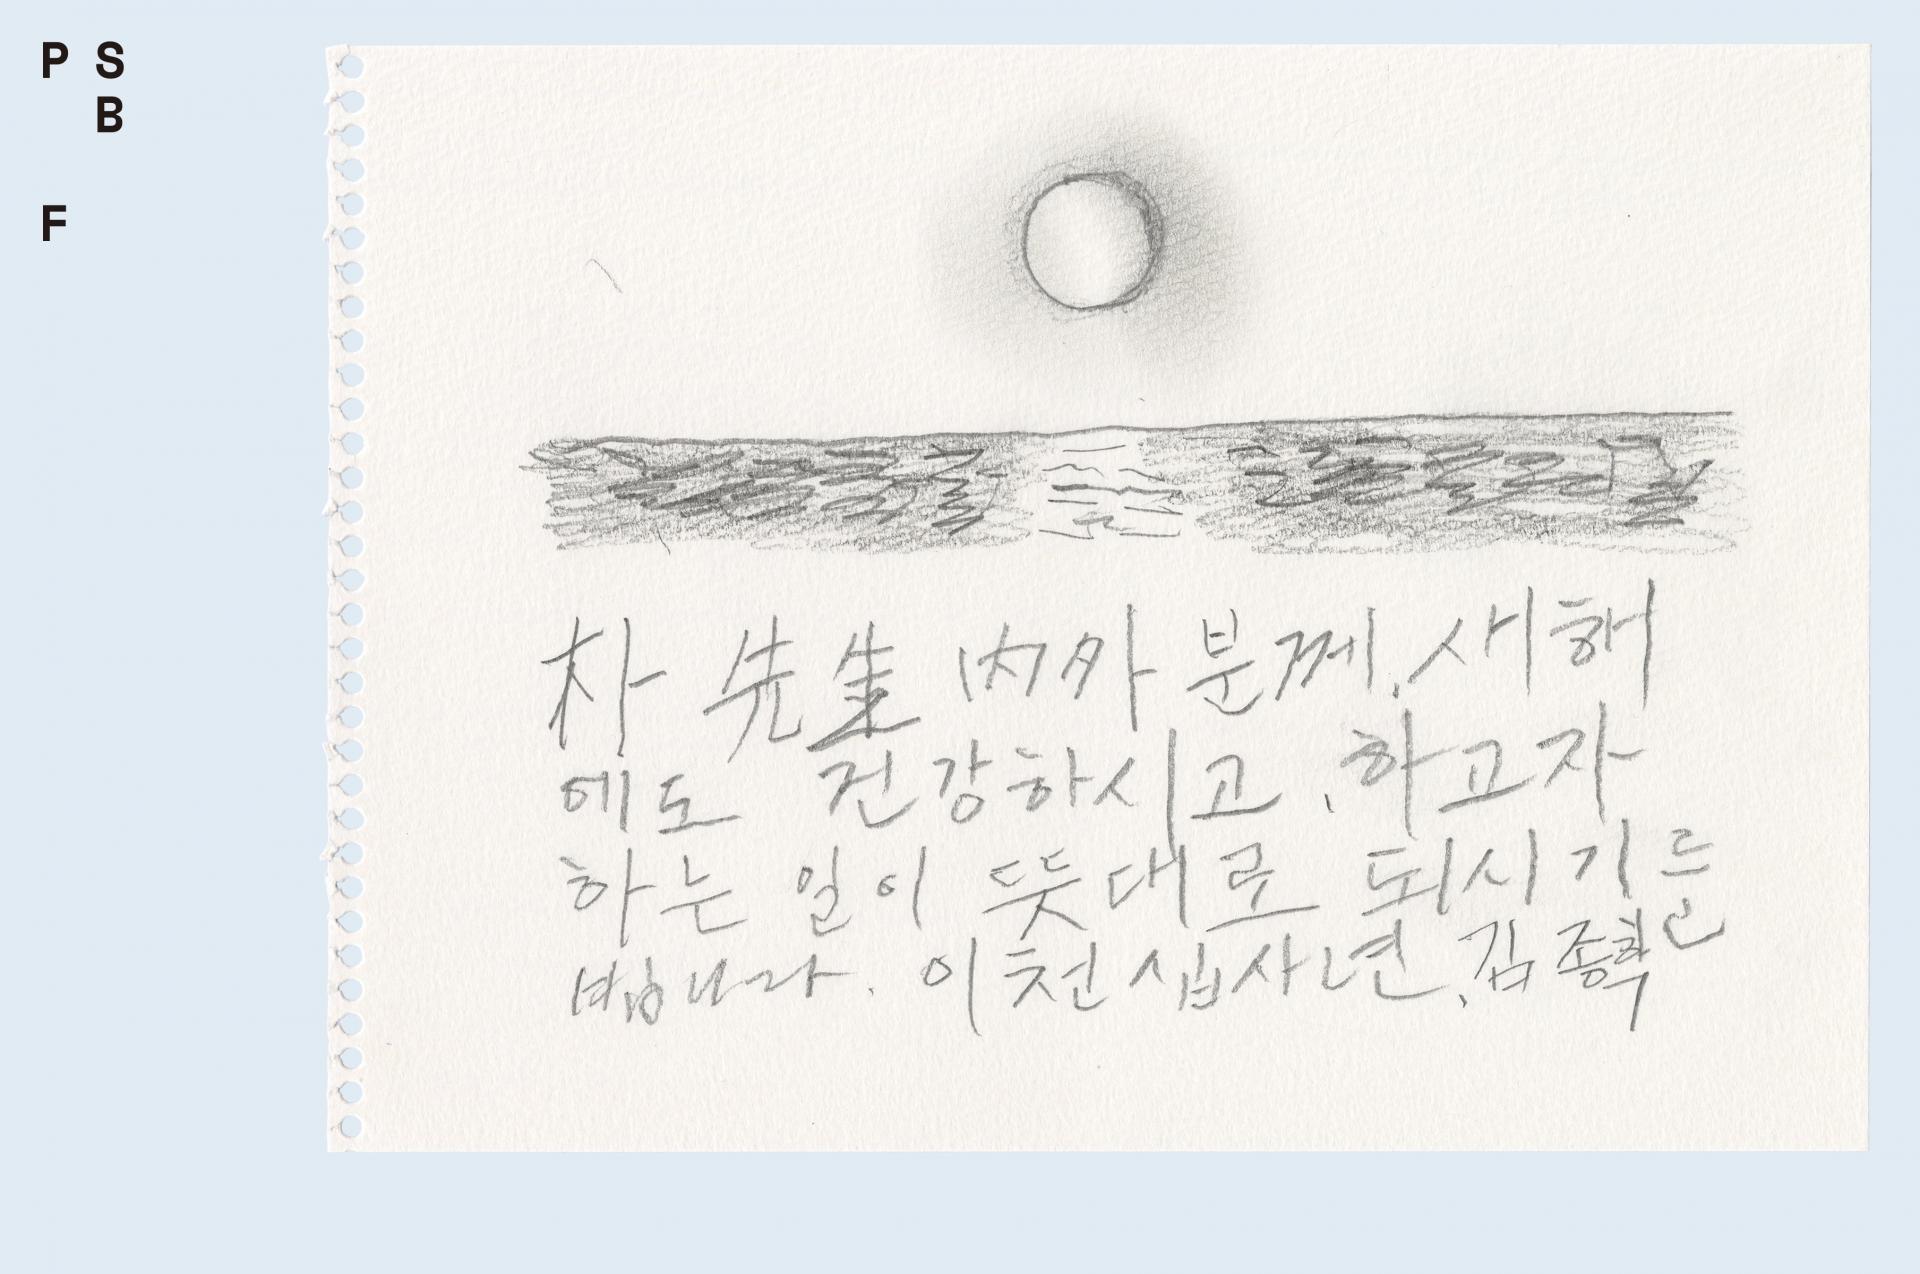 P S
B
F
朴 先生 内外 분께, 새해
에도 건강하시고, 하고자
하는 일이 뜻대로 되시기를
빕니다. 이천십사년, 김종학